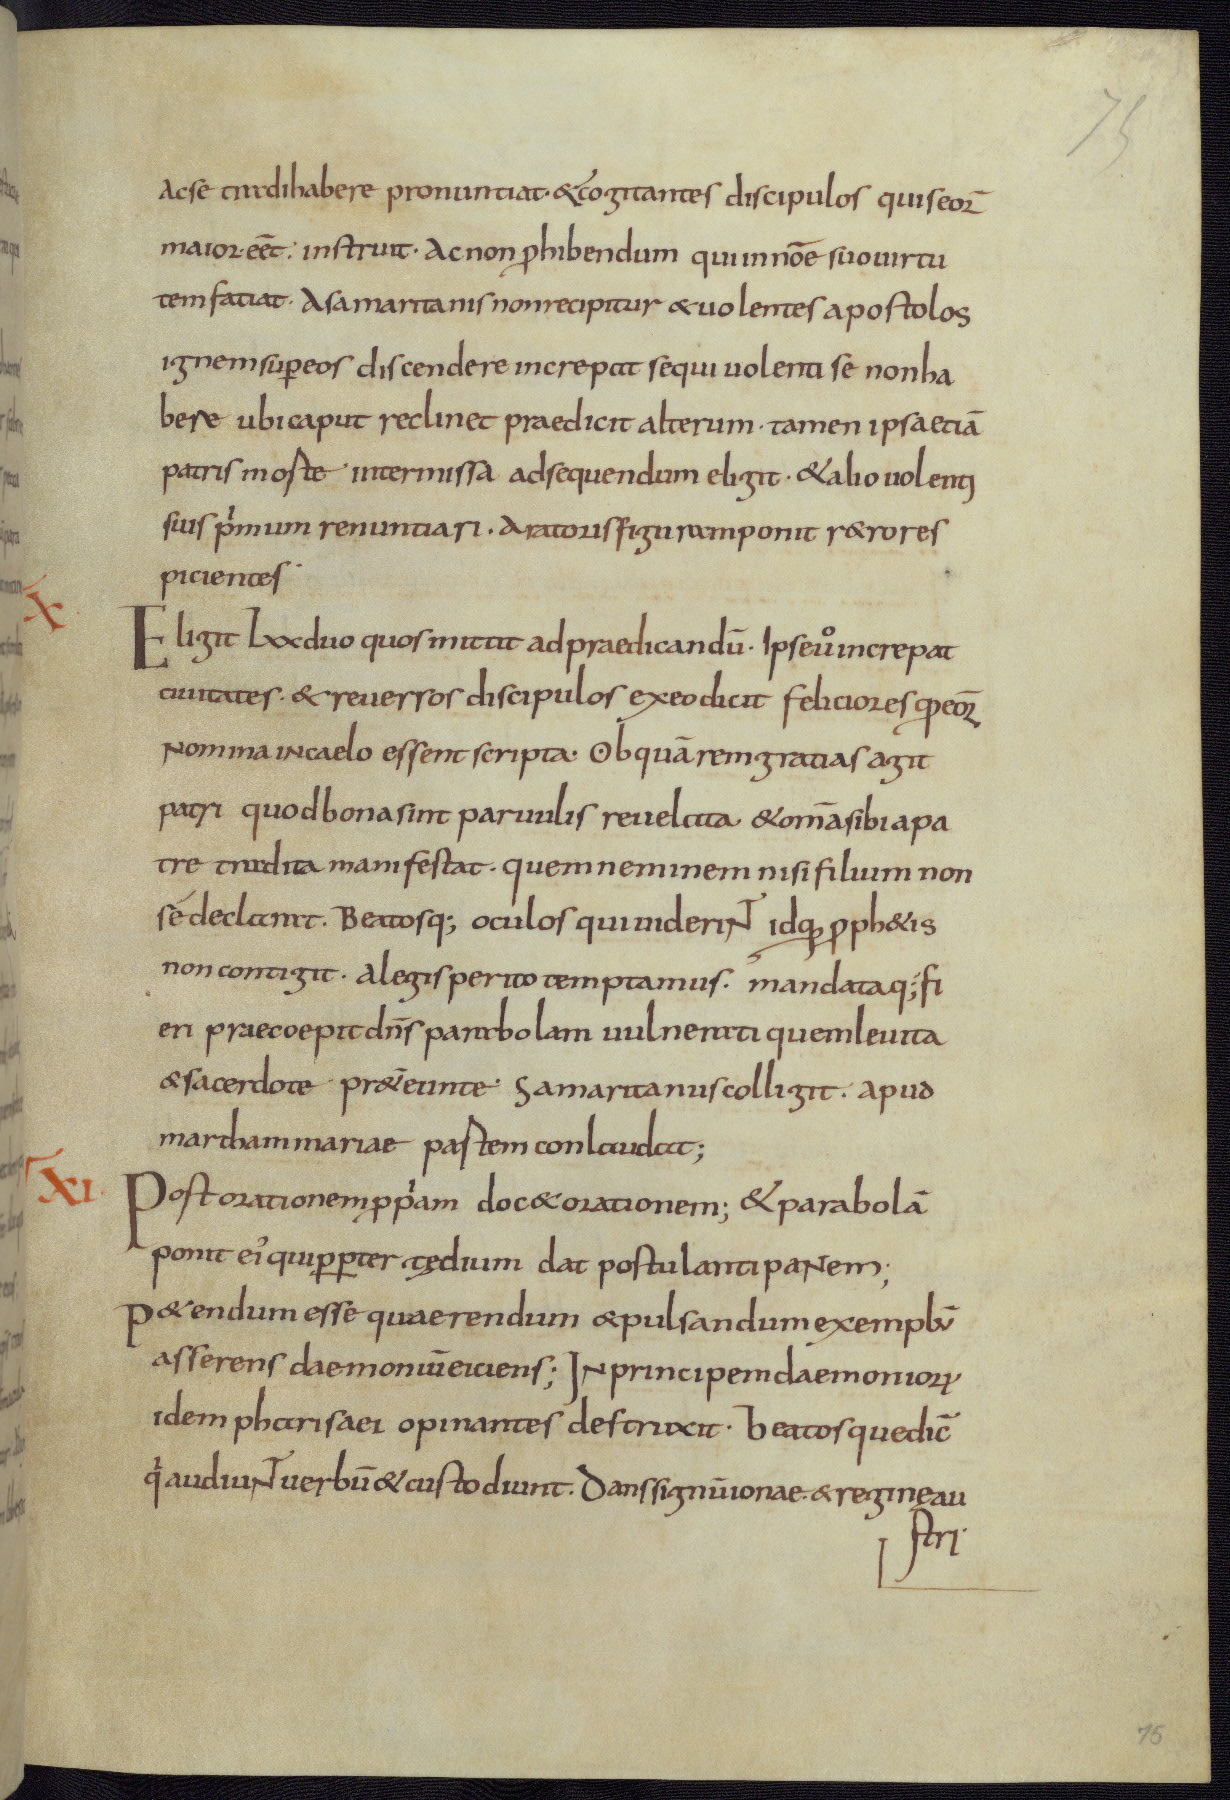 75
acse tradi habere pronuntiat · & cogitantes discipulos qui seoꝝ̄
maior eēt · instruit · Ac non ꝓhibendum qui in nōe suo uirtu
tem fatiat · A samaritanis non recipitur & uolentes apostolos
ignem sup̄ eos discendere increpat sequi uolenti se non ha
bere ubi caput reclinet praedicit alterum · tamen ipsa etiā
patris morte intermissa ad sequendum eligit · & alio uolenti
suis p̄mum renuntiari · Aratoris figuram ponit r&ro res
picientes
X Eligit Lxx duo quos mittit ad praedicandū · Ipse uͦ increpat
ciuitates · & reuersos discipulos ex eo dicit feliciores qđ eoꝝ
nomina in caelo essent scripta · Ob quā rem gratias agit
patri quod bona sint paruulis reuelata & omā sibi a pa
tre tradita manifestat · quem neminem nisi filium non
se declarat · Beatosq; oculos qui uiderint idq; ꝓph&is
non contigit · a legis perito temptamus · mandataq; fi
eri praecoepit dn̄s parabolam uulnerati quem leuita
& sacerdote pr&eunte · Samaritanus colligit · apud
martham mariae partem conlaudat;
XI Post orationem ꝓp̄am doc& orationem; & parabolā
ponit ei᾽ qui ꝓpter tędium dat postulanti panem;
P&endum esse quaerendum & pulsandum exemplū
asserens daemoniū eiciens; In principem daemonioꝝ
idem pharisaei opinantes destruxit · beatosque dic̄
q̄ audiunt uerbū & custodiunt · Dans signū ionae · & reginę au
stri ·
75